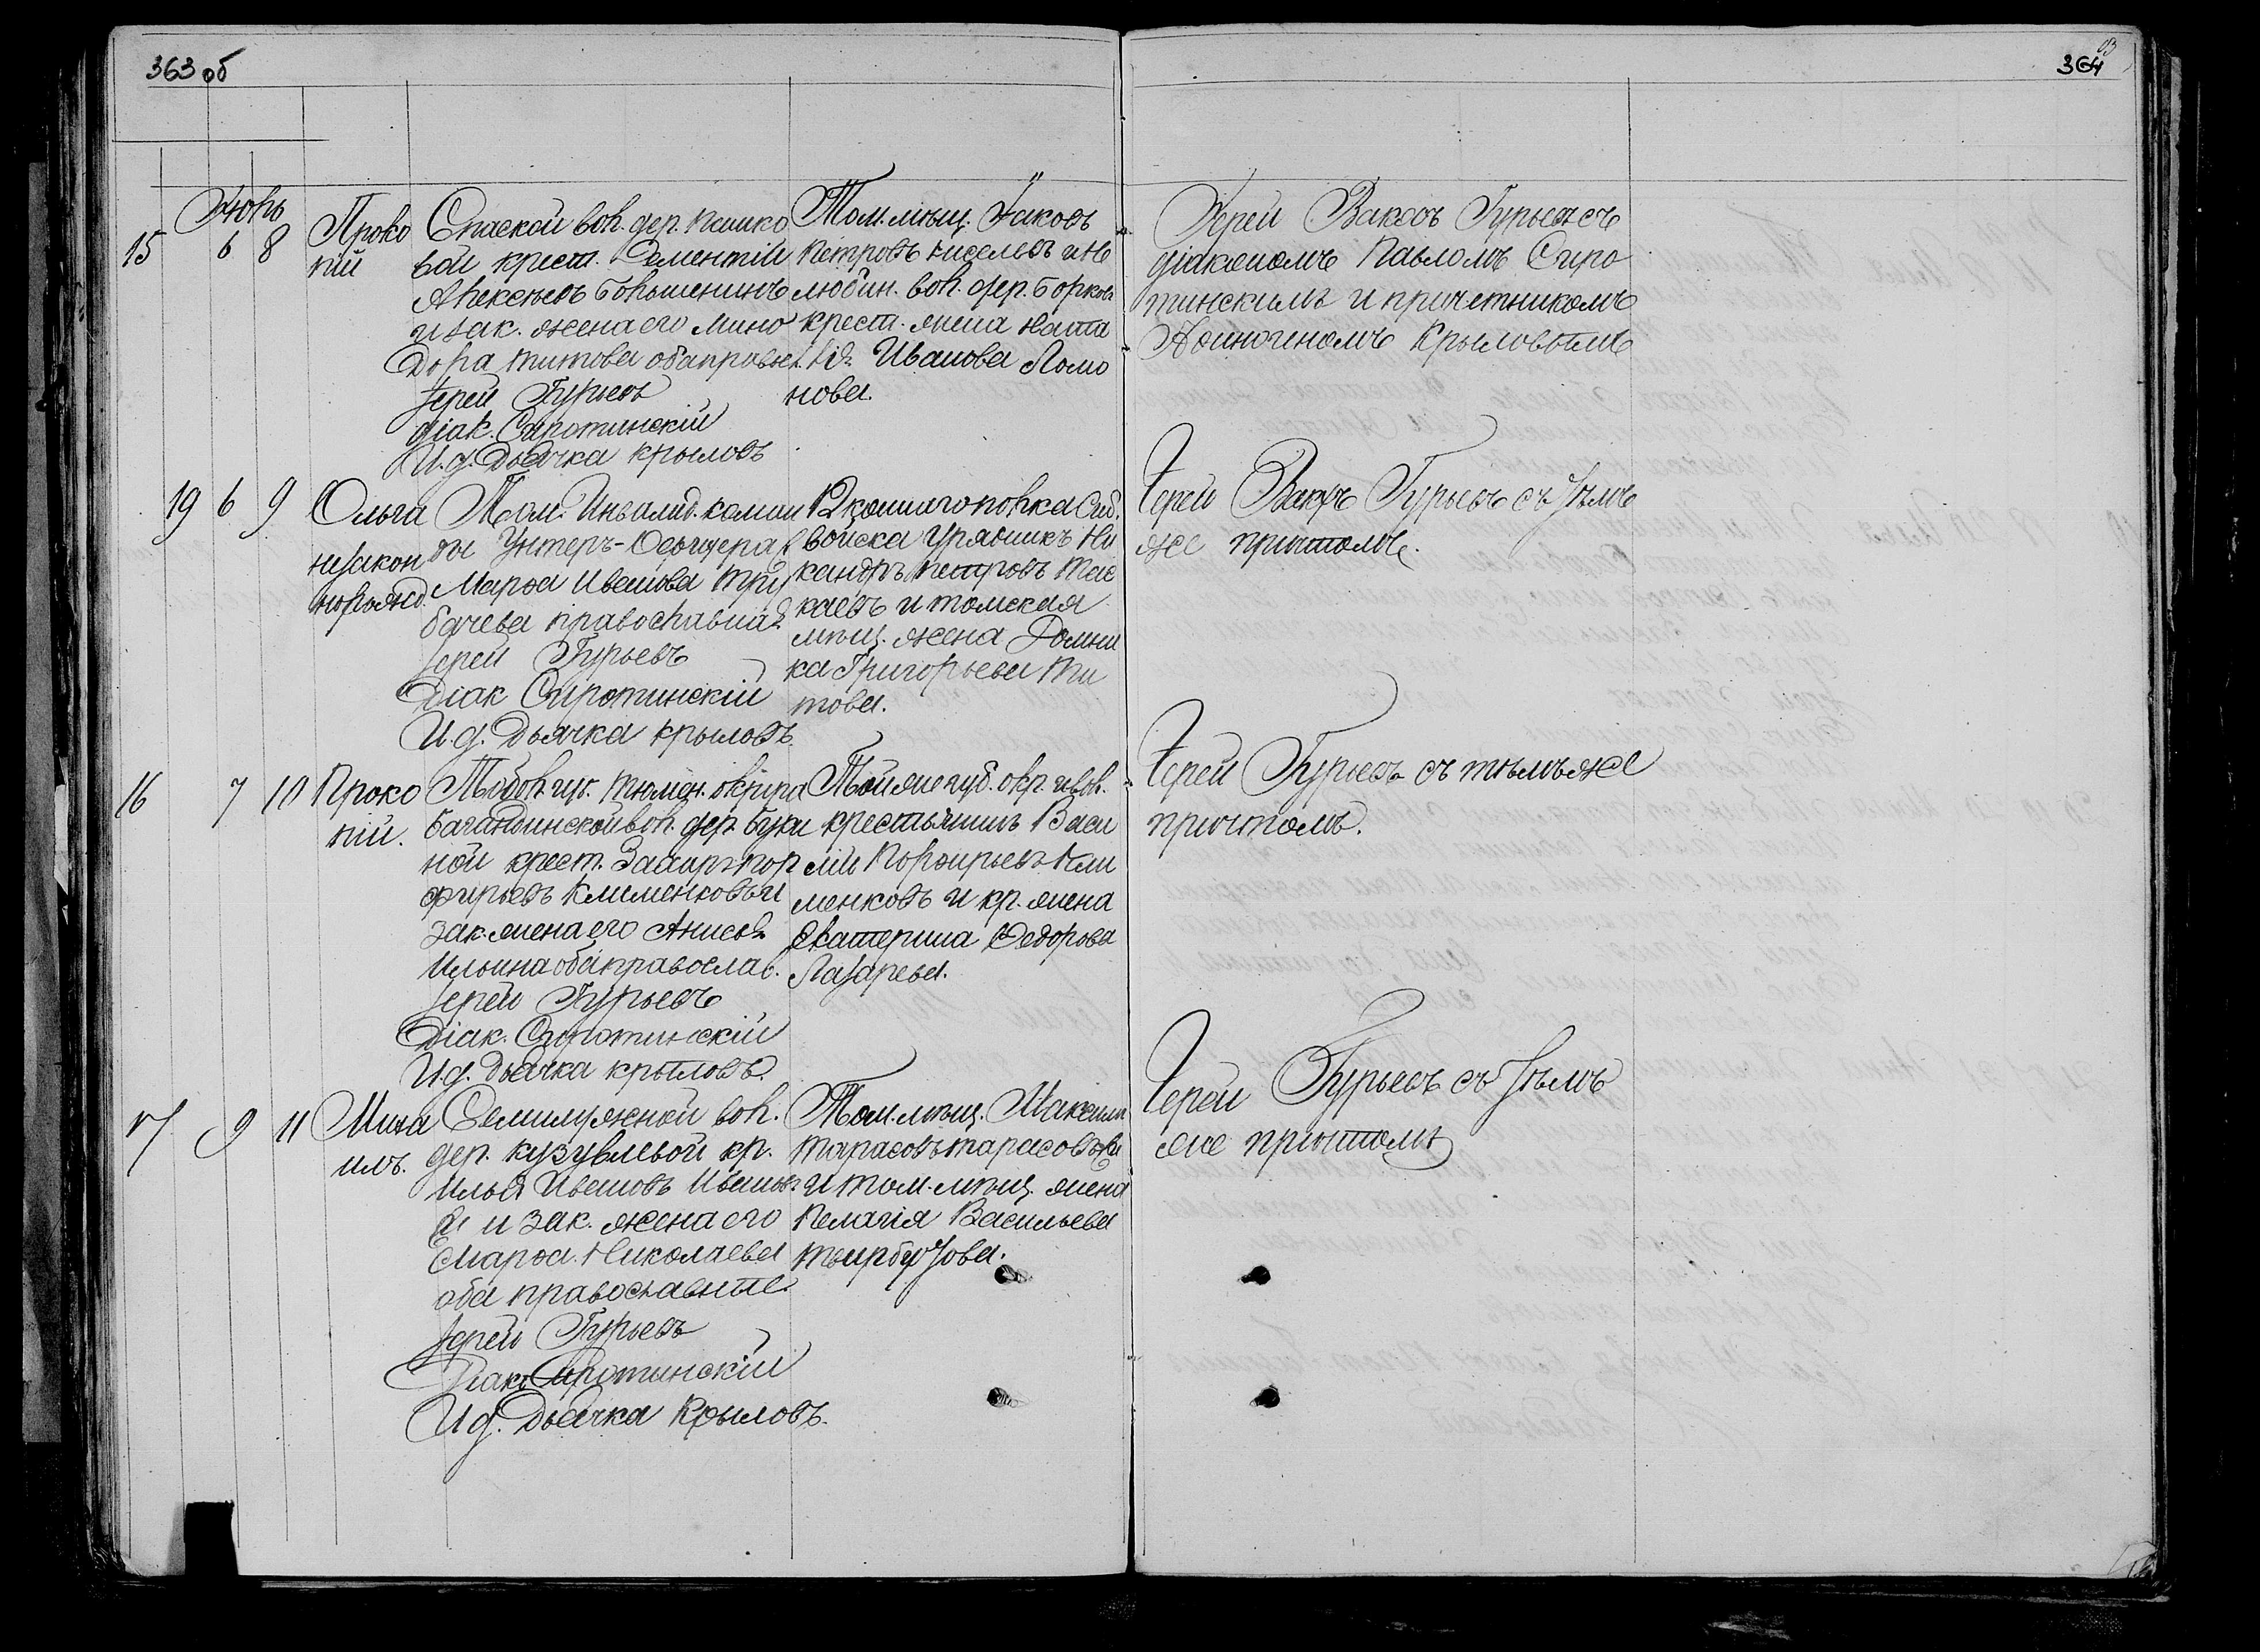 363 об
364
Іюнь
15 6 8
Проко
пій
Спаской вол. дер. Пашко
вой крест. Дементій
Алексѣевъ Большенинъ
и зак. жена его Мино
дора Титова оба правосл.
Іерей Гурьевъ
діак. Сиротинскій
И.д. Дьячка Крыловъ
Том. мѣщ. Іаковъ
Петровъ Киселевъ и Не
любин. вол. дер. Борков.
крест. жена Ната
лія Иванова Ломо
нова.
Іерей Вакхъ Гурьевъ съ
діакономъ Павломъ Сиро
тинскимъ и причетникомъ
Аѳиногеномъ Крыловымъ
19 6 9
Ольга
незакон
норожд.
Том. Инвалид. коман
ды Унтеръ-Офицера
Марѳа Иванова Тру
бачева православная
Іерей Гурьевъ
Діак Сиротинскій
И.д. Дьячка Крыловъ.
12 коннаго полка Сиб.
войска Урядникъ Ни
кандръ Петровъ
и томская
мѣщ. жена Домни
ка Григорьева Ти
това.
Іерей Вакхъ Гурьевъ съ тѣмъ
же причтомъ.
16 7 10
Проко
пій.
Тобол. губ. Тюмен. округа
Багандинской вол. дер. Буки
ной крест. Захаръ Пор
фирьевъ Клименковъ и
зак. жена его Анисья
Ильина оба православ.
Іерей Гурьевъ
Діак. Сиротинскій
И.д. Дьячка Крыловъ.
Той же губ. окр. и вол.
крестьянинъ Васи
лій Порфирьевъ Кли
менковъ и кр. жена
Екатерина Ѳедорова
Лазарева.
Іерей Гурьевъ съ тѣмъ же
причтомъ.
17 9 11
Миха
илъ.
Семилужной вол.
дер. Кузувлевой кр.
Илья Ивановъ Ивано
въ и зак. жена его
Марѳа Николаева
оба православные.
Іерей Гурьевъ
Діак. Сиротинскій
И.д. Дьячка Крыловъ.
Том. мѣщ. Максим
Тарасовъ Тарасовъ
и том. мѣщ. жена
Пелагія Васильева
Іерей Гурьевъ съ тѣмъ
же причтомъ